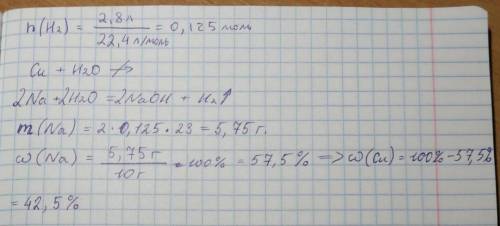 n(H₂) = 2,8л / 22,4 л/моль = 0,125 моль
Cu + H₂O ↛
2Na + 2H₂O = 2NaOH + H₂↑
m(Na) = 2 · 0,125 · 23 = 5,75 г.
ω(Na) = 5,75 г / 10 г · 100% = 57,5% => ω(Cu) = 100% - 57,5%
= 42,5%